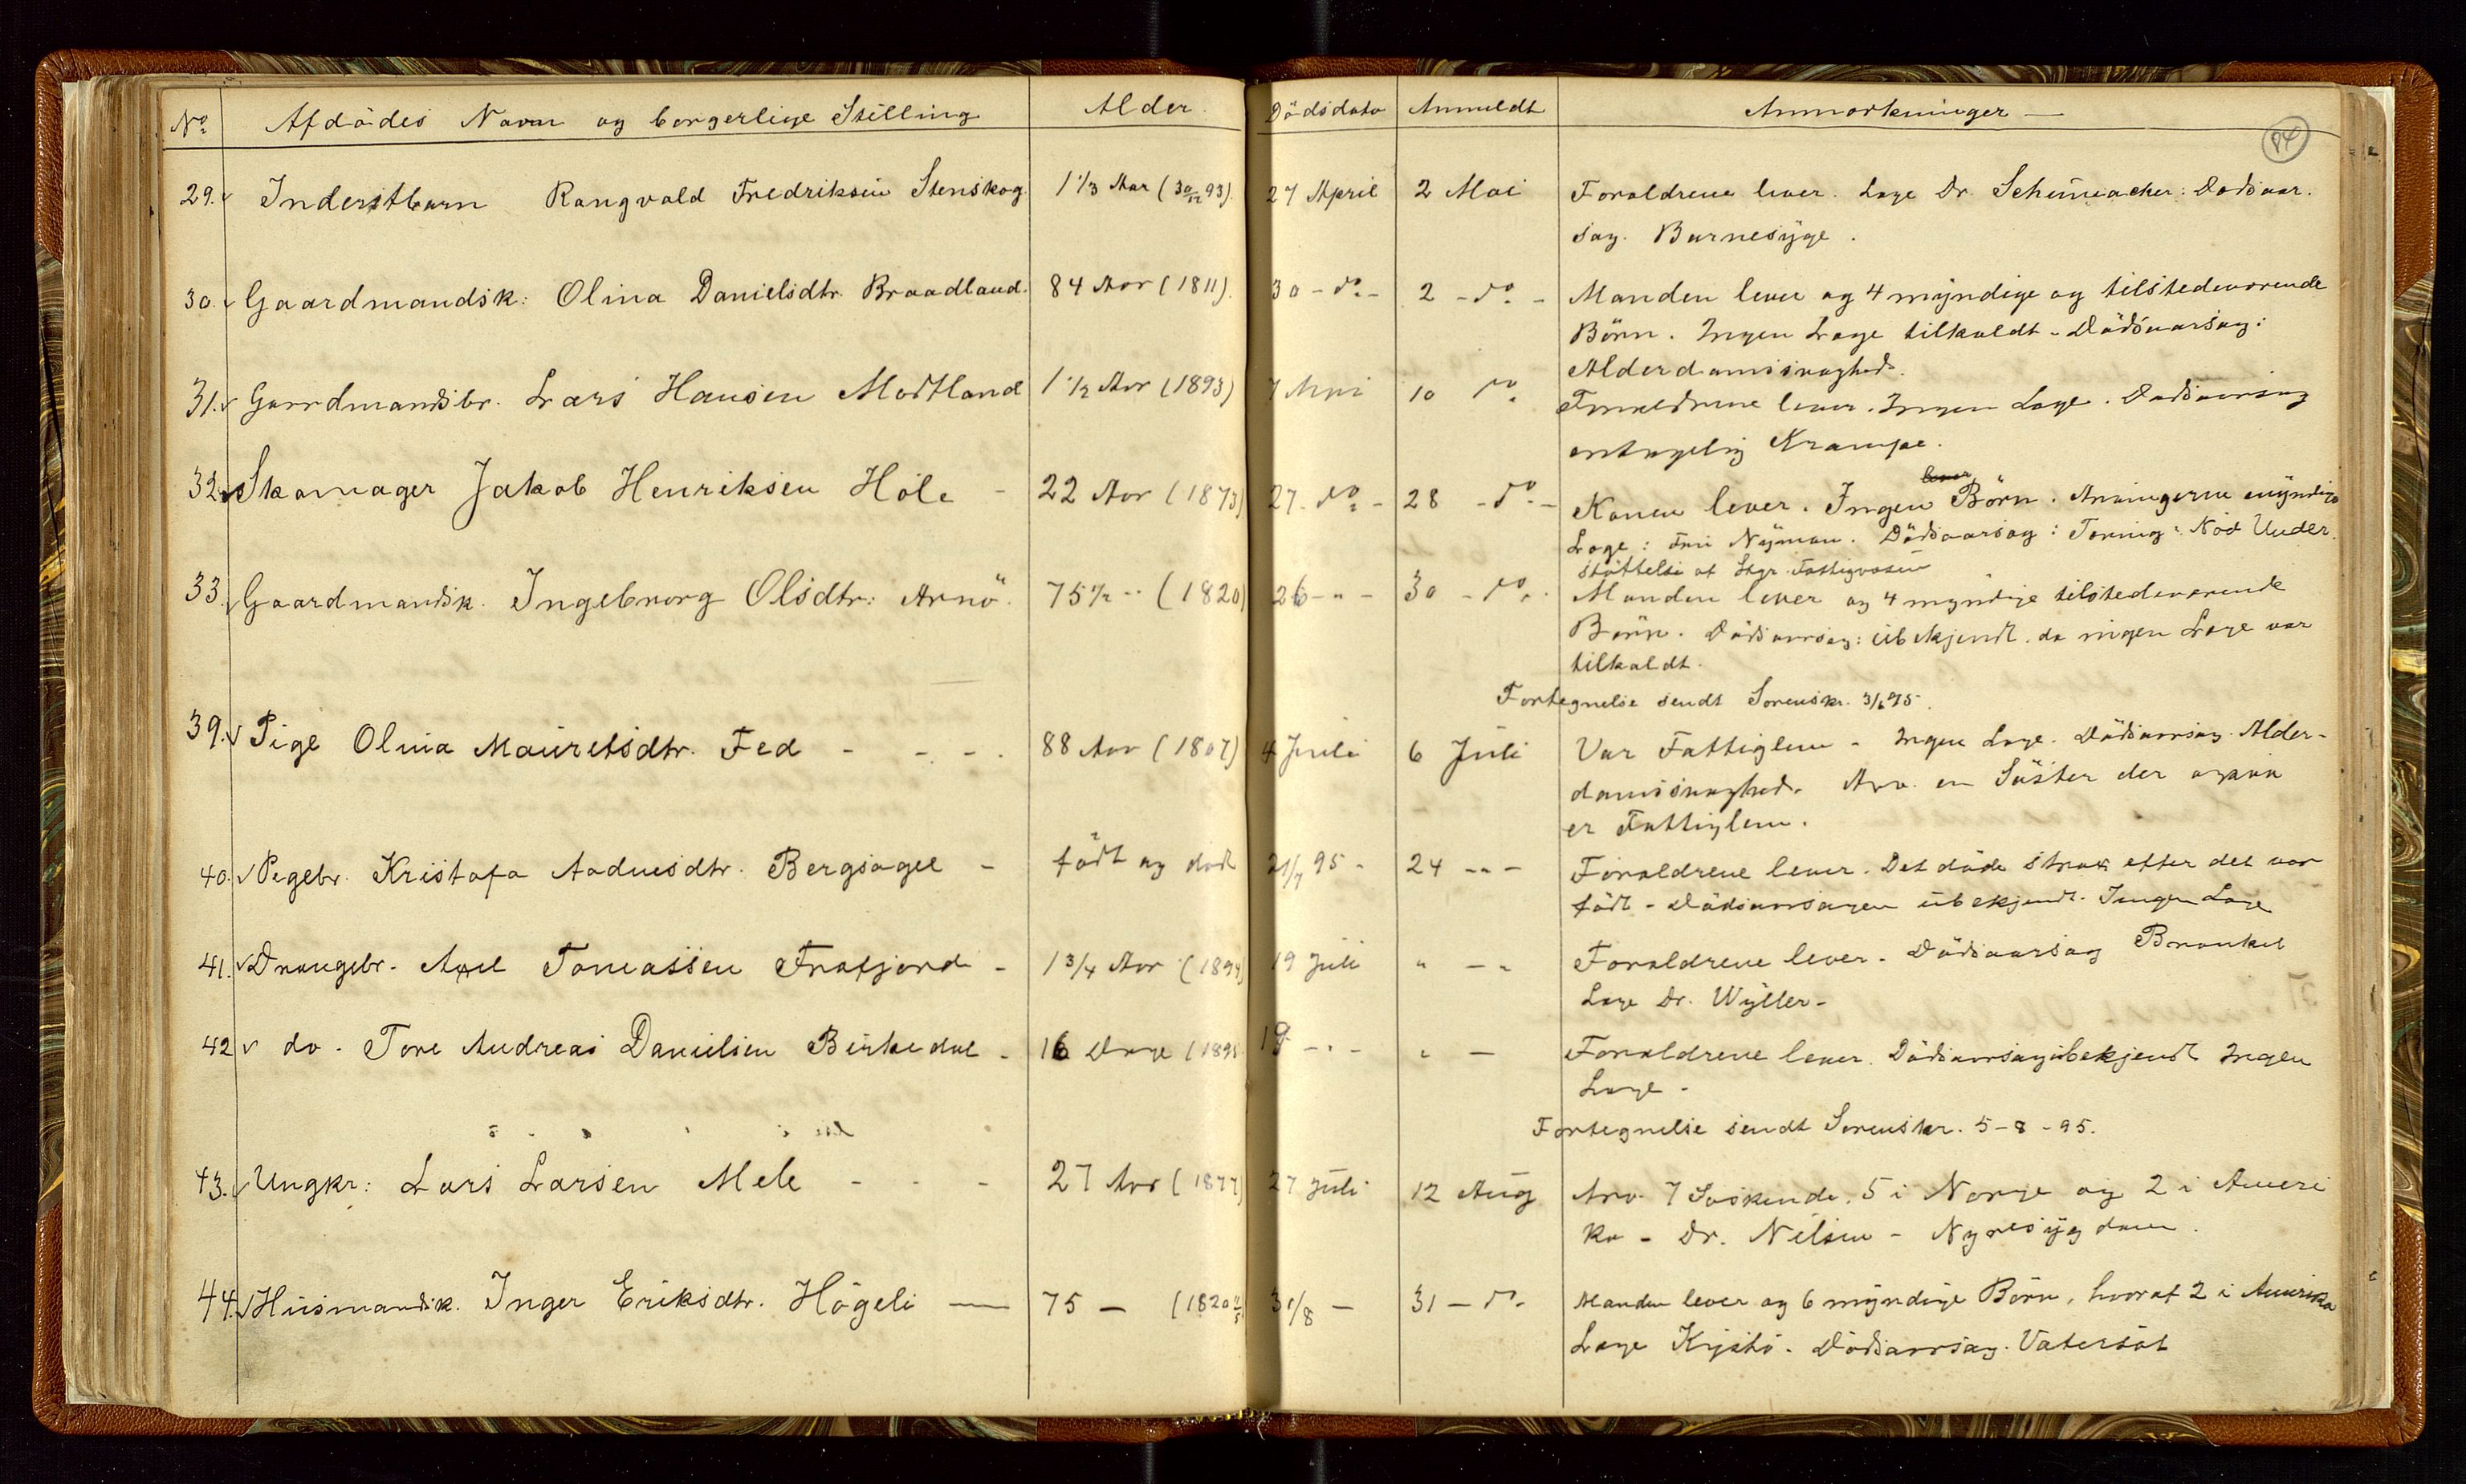 No. Afdödes Navn og borgerlige Stilling Alder Dödsdato Anmeldt Anmærkninger
94
29. Inderstbarn Rangvald Fredriksen Stenskog. 1 1/3 Aar (30/12 93). 27 April 2 Mai Forældrene lever. Læge Dr. Schumacher: Dødsaar-
sag. Barnesyge.
30. Gaardmandsk: Olina Danielsdtr. Braadland. 84 Aar (1811). 30 - do - 2 - do - Manden lever og 4 myndige og tilstedeværende
Börn. Ingen Læge tilkaldt - Dödsaarsag:
Alderdomssvaghed.
31. Gaardmandsbr. Lars Hansen Modtland 1 1/2 Aar (1893) 7 Mai 10 do. Forældrene lever. Ingen Læge. Dødsaarsag
antagelig Krampe.
32. Skomager Jakob Henriksen Høle - 22 Aar (1873) 27 - do - 28 - do - Konen lever. Ingen Börn. Arvingerne myndige
Læge: Dödsaarsag: Tæring: Nød Under-
støttelse af Fattigvæsen
33. Gaardmandsk. Ingeborg Olsdtr: Arnö. 75 1/2 - (1820) 26 - " - 30 - do. Manden lever og 4 myndige tilstedeværende
Börn. Dødsaarsag: übekjendt, da ingen Læge var
tilkaldt.
Fortegnelse sendt Sorenskr. 3/6 95.
39. Pige Olina Mauritsdtr. Fed - - - 88 Aar (1807) 4 Juli 6 Juli Var Fattiglem - Ingen Læge. Dödsaarsag. Alder-
domssvaghed. Arv. en Söster der ogsaa
er Fattiglem.
40. Pigebr. Kristofa Aadnesdtr. Bergsagel - födt og död 21/7 95 - 24 - " - Forældrene lever. Det döde strax efter det var
födt - Dödsaarsagen übekjendt. Ingen Læge
41. Drengebr. Axel Tomassen Frafjord - 1 3/4 Aar (1894) 19 Juli " - " Forældrene lever. Dödsaarsag Bronkit
Læge Dr. Wyller -
42 do. Tore Andreas Danielsen Birkedal - 16 Dage (1895 19 - " - " - Forældrene lever. Dödsaarsag übekjendt Ingen
Læge -
Fortegnelse sendt Sorenskr. 5-8-95.
43. Ungkr: Lars Larsen Mele - - - 27 Aar (1877) 27 Juli 12 Aug Arv. 7 Søskende. 5 i Norge og 2 i Ameri
ka - Dr. Nilsen - Nyresygdom.
44. Husmandsk. Inger Eriksdtr. Högeli — 75 — (1820 31/8 - 31 - do - Manden lever og 6 myndige Börn, hvoraf 2 i Amerika
Læge Kystö. Dödsaarsag. Vatersöt